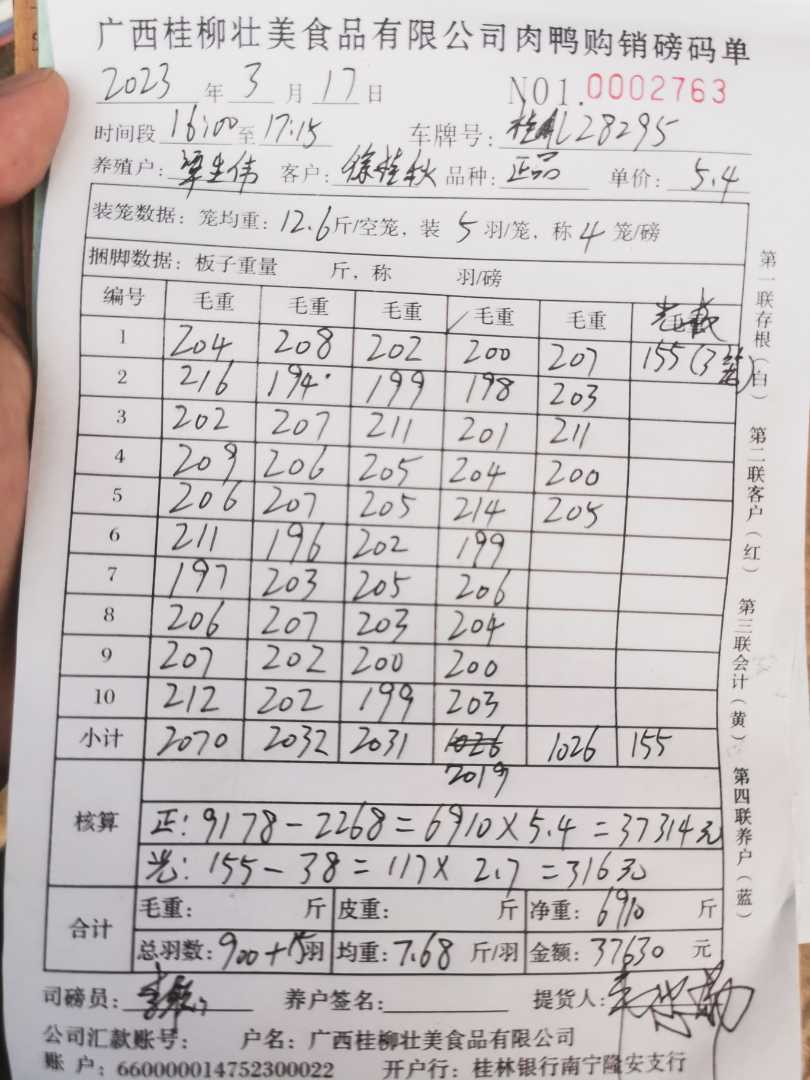 广西桂柳壮美食品有限公司肉鸭购销磅码单
2023 年 3 月 17 日 NO1.0002763
时间段 16:00 至 17:15 车牌号: 28295
养殖户: 伟 客户: 徐桂秋 品种: 正品 单价: 5.4
装笼数据: 笼均重: 12.6 斤/空笼, 装 5 羽/笼, 称 4 笼/磅
捆脚数据: 板子重量 斤, 称 羽/磅
编号 毛重 毛重 毛重 毛重 毛重 毛重
1 204 208 202 200 207 155(3笼)
2 216 194 199 198 203
3 202 207 211 201 211
4 209 206 205 204 200
5 206 207 205 214 205
6 211 196 202 199
7 197 203 205 206
8 206 207 203 204
9 207 202 200 200
10 212 202 199 203
小计 2070 2032 2031 1026 1026 155
2019
核算
正: 9178-2268=6910×5.4=37314元
光: 155-38=117×2.7=316元
合计
毛重: 斤 皮重: 斤 净重: 6910 斤
总羽数: 900+15羽 均重: 7.68 斤/羽 金额: 37630 元
司磅员: 养户签名: 提货人:
公司汇款账号: 户名: 广西桂柳壮美食品有限公司
账户: 660000014752300022 开户行: 桂林银行南宁隆安支行
第一联存根(白) 第二联客户(红) 第三联会计(黄) 第四联养户(蓝)